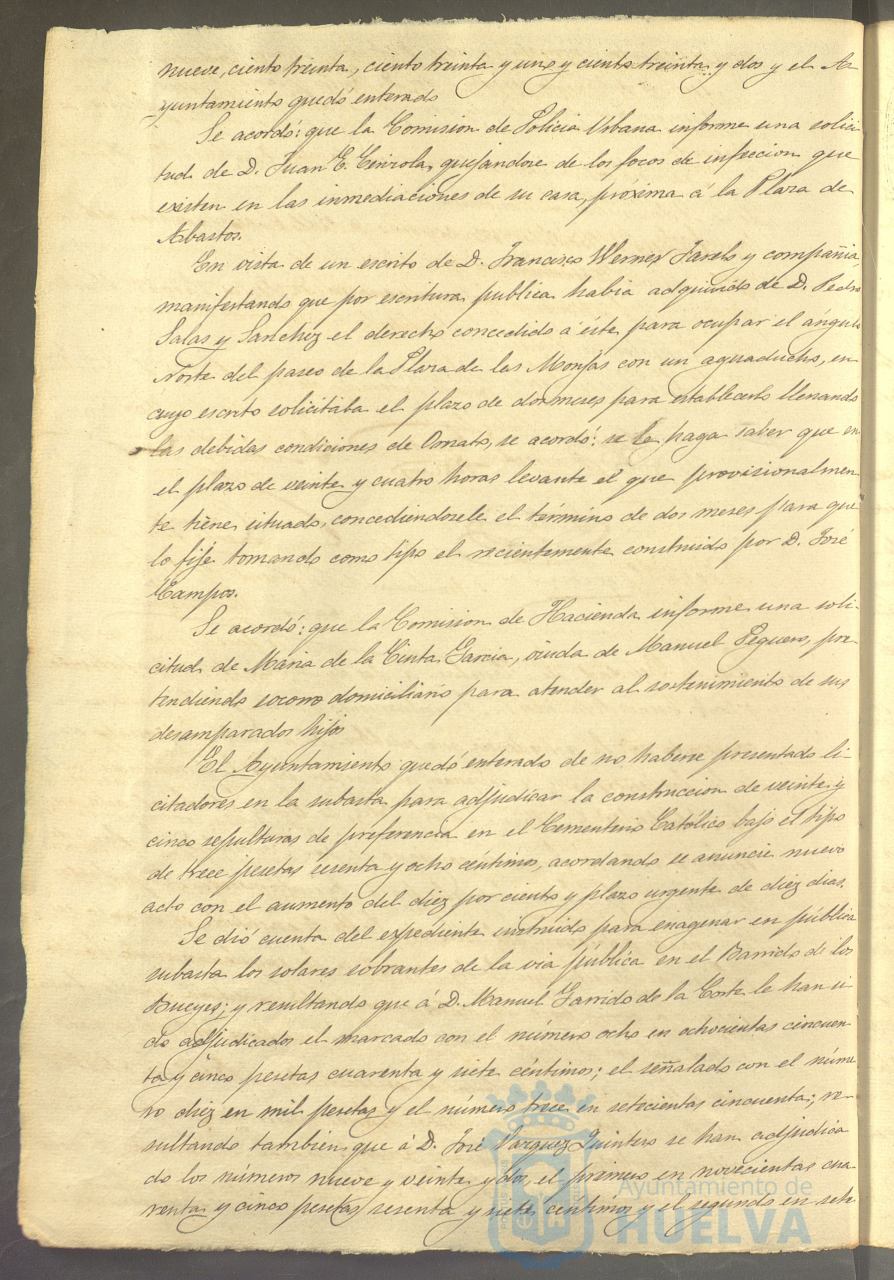 nueve, ciento treinta, ciento treinta y uno y ciento treinta y dos y el A-
yuntamiento quedó enterado
Se acordó: que la Comision de Policia Urbana informe una solici-
tud de D. Juan E. quejandose de los focos de infeccion que
existen en las inmediaciones de su casa, proxima á la Plaza de
Abastos.
En vista de un escrito de D. Francisco Werner y compañia,
manifestando que por escritura publica habia adquirido de D. Pedro
Salas y Sanchez el derecho concedido á éste para ocupar el angulo
Norte del paseo de la Plaza de las Monjas con un aguaducho, en
cuyo escrito solicitaba el plazo de dos meses para establecerlo llenando
las debidas condiciones de Ornato, se acordó: se le haga saber que en
el plazo de veinte y cuatro horas levante el que provisionalmen-
te tiene situado, concediendosele el término de dos meses para que
lo fije tomando como tipo el recientemente construido por D. José
Campos.
Se acordó: que la Comision de Hacienda informe una soli-
citud de Maria de la Cinta Garcia, viuda de Manuel Peguero, pre-
tendiendo socorro domiciliario para atender al sostenimiento de sus
desamparados hijos
El Ayuntamiento quedó enterado de no haberse presentado li-
citadores en la subasta para adjudicar la construccion de veinte y
cinco sepulturas de preferencia en el Cementerio Católico bajo el tipo
de trece pesetas sesenta y ocho céntimos, acordando se anuncie nuevo
acto con el aumento del diez por ciento y plazo urgente de diez dias.
Se dió cuenta del expediente instruido para enagenar en pública
subasta los solares sobrantes de la via pública en el Barrido de los
Bueyes; y resultando que á D. Manuel Garrido de la Corte le han si-
do adjudicados el marcado con el número ocho en ochocientas cincuen-
ta y cinco pesetas cuarenta y siete céntimos; el señalado con el núme-
ro diez en mil pesetas y el número trece en setecientas cincuenta; re-
sultando tambien que á D. José Vazquez Quintero se han adjudica-
do los números nueve y veinte y dos, el primero en novecientas cua-
renta y cinco pesetas sesenta y siete céntimos y el segundo en sete-
Ayuntamiento de
HUELVA